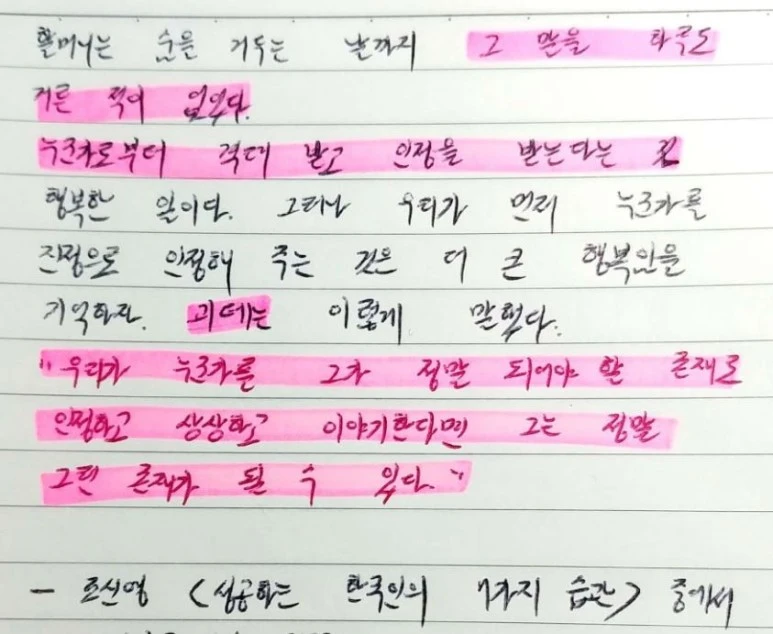 할머니는 숨을 거두는 날까지 그 말을 하루도
거른 적이 없었다.
누군가로부터 격려 받고 인정을 받는다는 건
행복한 일이다. 그러나 우리가 먼저 누군가를
진정으로 인정해 주는 것은 더 큰 행복임을
기억하라. 괴테는 이렇게 말했다.
"우리가 누군가를 그가 정말 되어야 할 존재로
인정하고 상상하고 이야기한다면 그는 정말
그런 존재가 될 수 있다."
- 조신영 <성공하는 한국인의 7가지 습관> 중에서